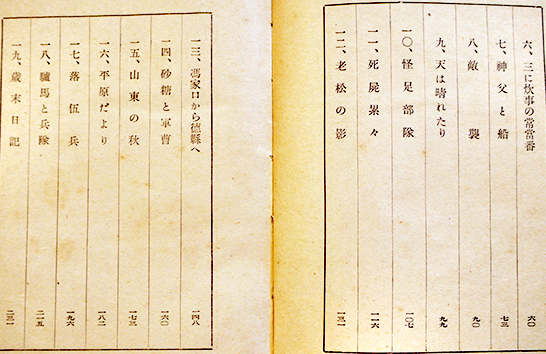 六、三に炊事の常當番 六〇
七、神父と船 七三
八、敵襲 九〇
九、天は晴れたり 九九
一〇、怪足部隊 一〇七
一一、死屍累々 一一六
一二、老松の影 一三一
一三、馮家口から德縣へ 一四八
一四、砂糖と軍曹 一六〇
一五、山東の秋 一七三
一六、平原だより 一八二
一七、落伍兵 一九六
一八、驢馬と兵隊 二一五
一九、歲末日記 二三一